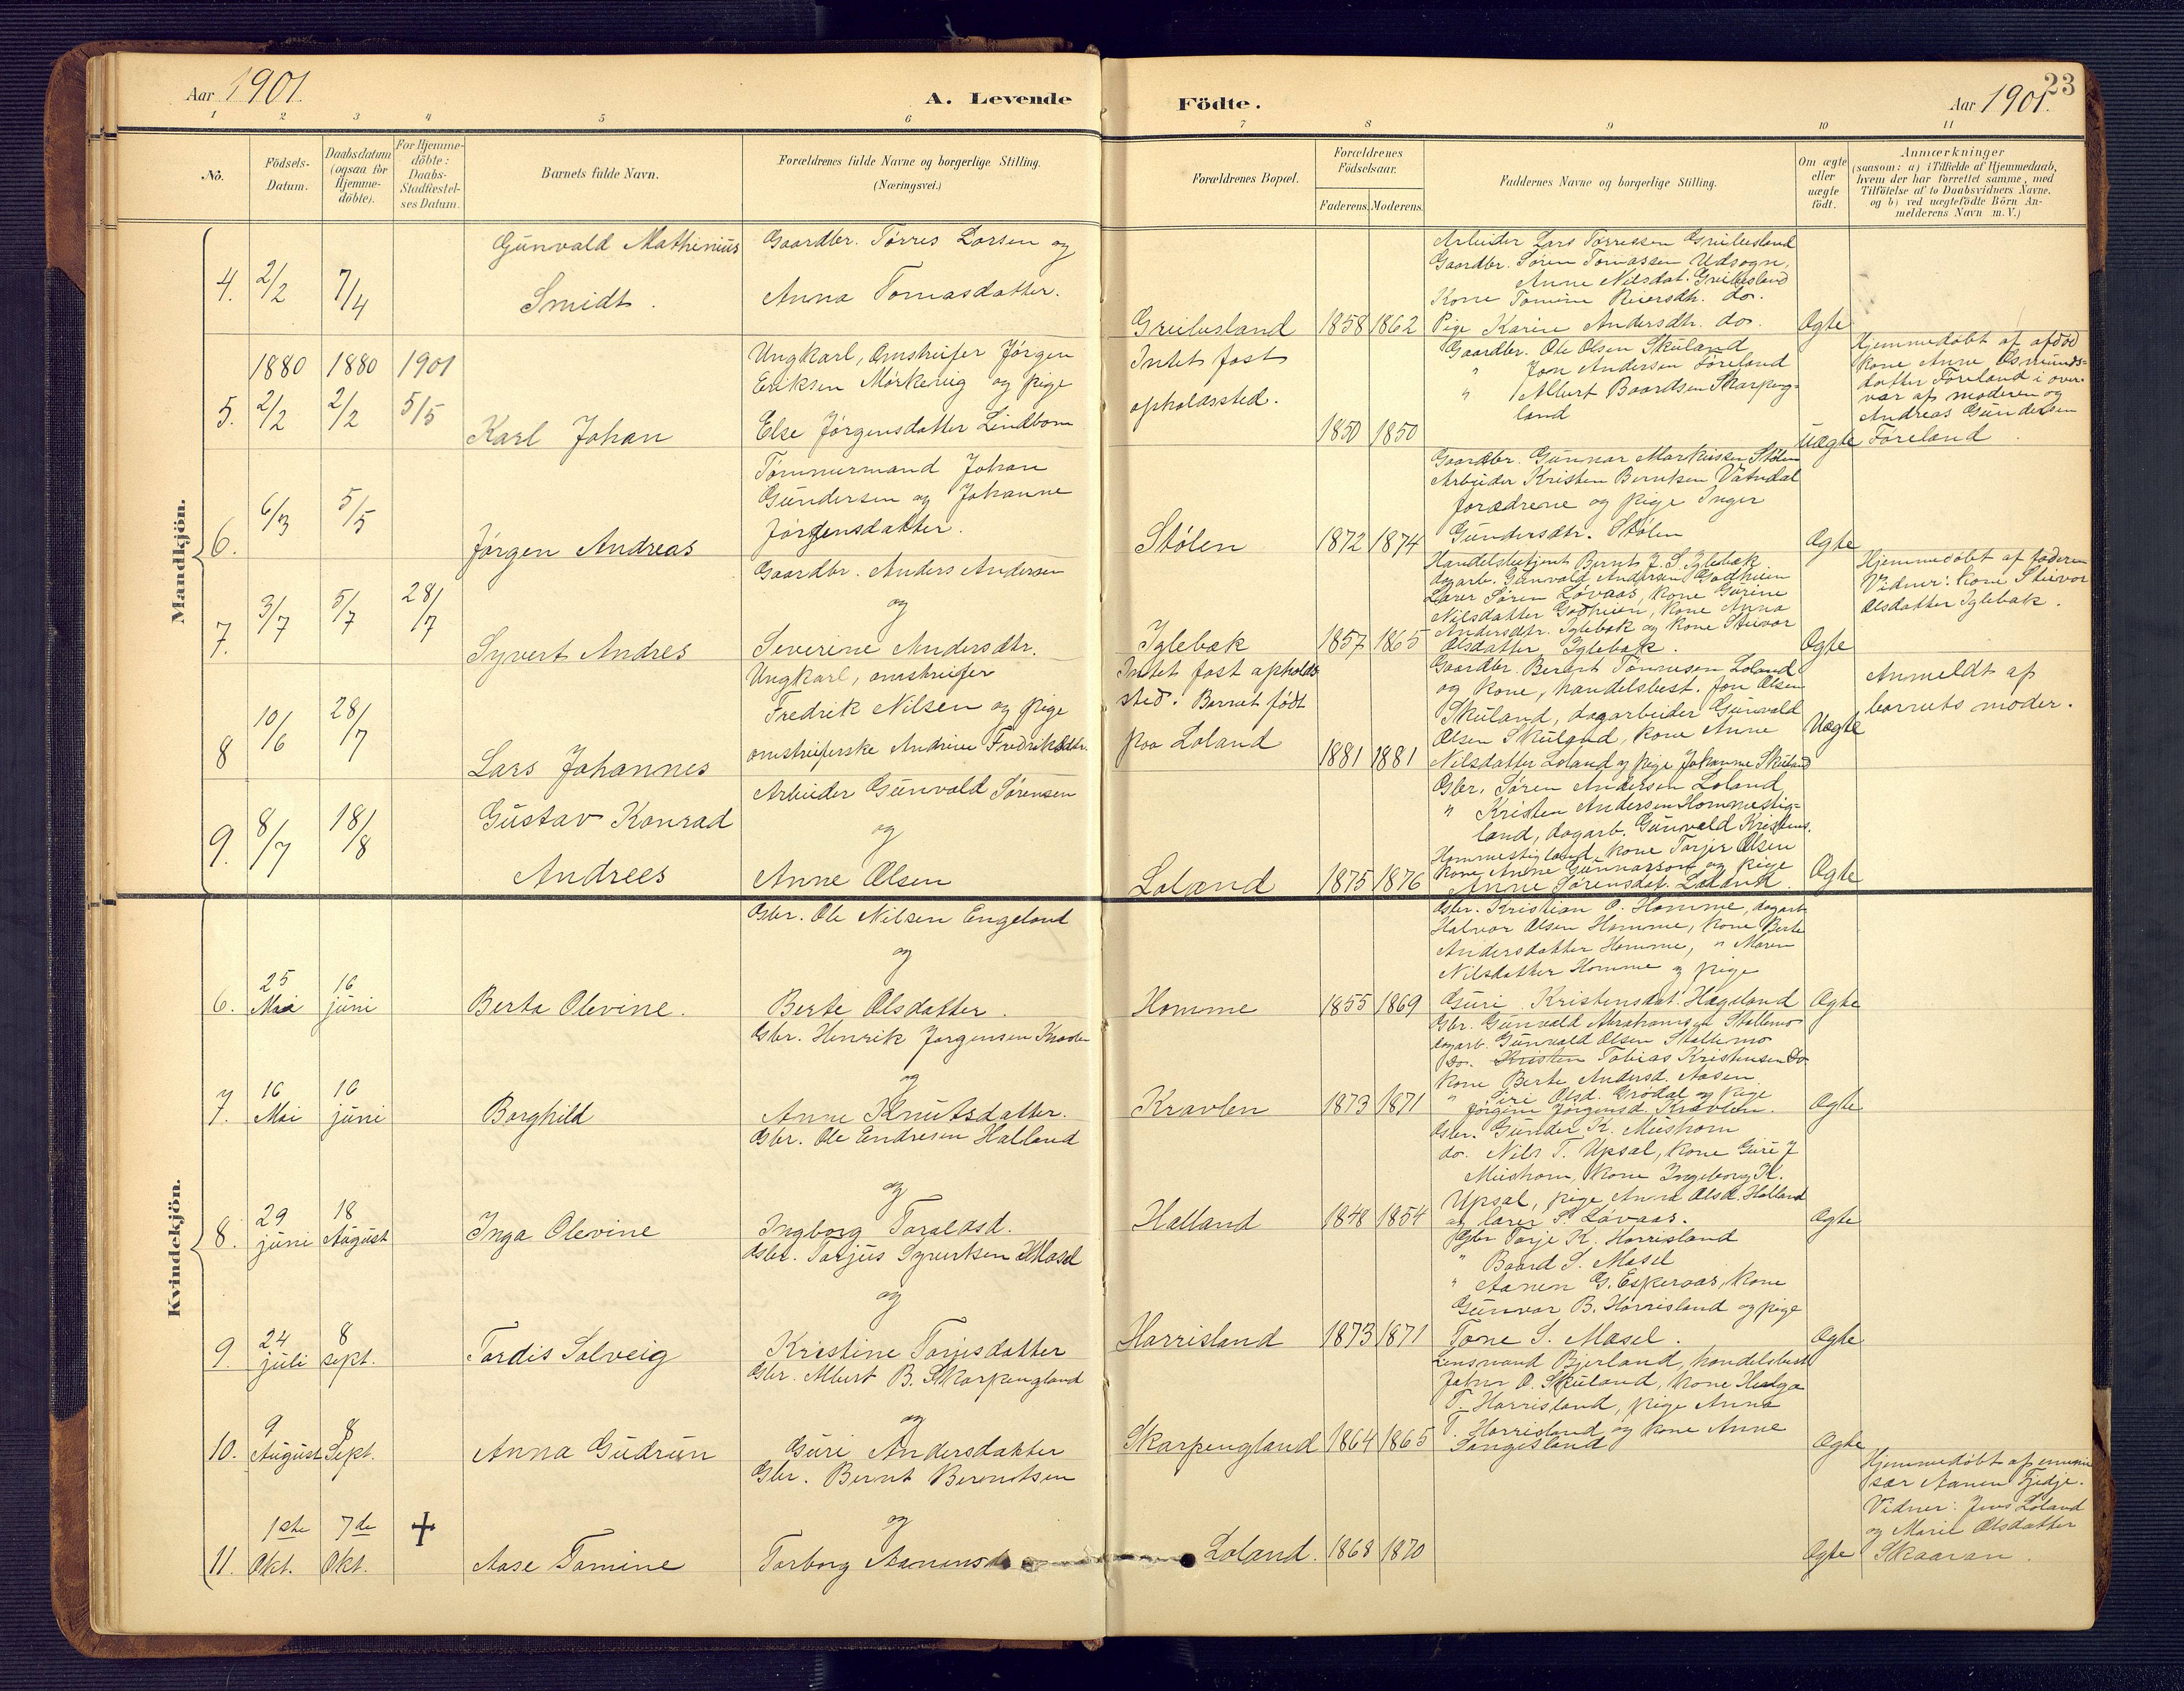 23
Aar 1901.
A. Levende
Födte.
Aar 1901.
1 2 3 4 5 6 7 8 9 10 11
No.
Födsels-
Datum.
Daabsdatum
(ogsaa for
Hjemme-
döbte).
For Hjemme-
döbte:
Daabs-
Stadfæstel-
ses Datum.
Barnets fulde Navn.
Forældrenes fulde Navne og borgerlige Stilling.
(Næringsvei.)
Forældrenes Bopæl.
Forældrenes
Födselsaar.
Faderens.
Moderens.
Faddernes Navne og borgerlige Stilling.
Om ægte
eller
uægte
födt.
Anmærkninger
(saasom: a) i Tilfælde af Hjemmedaab,
hvem der har forrettet samme, med
Tilföielse af to Daabsvidners Navne.
og b) ved uægtefödte Börn An-
melderens Navn m. V.)
Mandkjön.
4.
2/2
7/4
Gunvald Mathinius
Smidt.
Gaardbr. Tørres Larsen og
Anna Tomasdatter.
Greibesland
1858
1862
Arbeider Lars Tørressen Greibesland
Gaardbr. Søren Tomassen Udsogne,
Anne Nilsdat. Greibesland
Kone Tomine Reiersdtr. do.
Pige Karin Andersdtr. do.
Ægte
5.
1880
2/2
1880
2/2
1901
5/5
Karl Johan
Ungkarl, Omstreifer Jørgen
Eriksen Mørkerig og pige
Else Jørgensdatter Lindbom
Intet fast
opholdssted.
1850
1850
Gaardbr. Ole Olsen Skuland
" Jon Andersen Føreland
" Albert Baardsen Skarpeng-
land
Uægte
Hjemmedøbt af afdød
kone Anne Osmunds-
datter Føreland i over-
vær af moderen og
Andreas Gundersen
Føreland.
6.
6/3
5/5
Jørgen Andreas
Tømmermand Johan
Gundersen og Johanne
Jørgensdatter.
Stølen
1872
1874
Gaardbr. Gunnar Markussen Stølen
Arbeider Kristen Berntsen Vatndal
forældrene og pige Inger
Gundersdtr. Stølen
Ægte
7.
3/7
5/7
28/7
Syvert Andres
Gaardbr. Anders Andersen
og
Severine Andersdtr.
Iglebæk
1857
1865
Handelsbetjent Bernt J. S. Iglebæk
dagarb. Gunvald Andersen Godheien
Lærer Søren Løvaas, kone Gurine
Nilsdatter Godheien, kone Anna
Andersdtr. Iglebæk og kone Steivor
Olsdatter Iglebæk.
Ægte
Hjemmedøbt af faderen
Vidner: kone Steivor
Olsdatter Iglebæk.
8
10/6
28/7
Lars Johannes
Ungkarl, omstreifer
Fredrik Nilsen og pige
omstreiferske Andrine Fredriksdtr.
Intet fast opholds
sted. Barnet født
paa Loland
1881
1881
Gaardbr. Bernt Tønnesen Loland
og kone, handelsbest. Jon Olsen
Skuland, dagarbeider Gunvald
Olsen Skuland, kone Anne
Nilsdatter Loland og pige Johanne Skuland
Uægte
Anmeldt af
barnets moder.
9.
8/7
18/8
Gustav Konrad
Andrees
Arbeider Gunvald Sørensen
og
Anne Olsen
Loland
1875
1876
Gbr. Søren Andersen Loland,
" Kristen Andersen Hommestig-
land, dagarb. Gunvald Kristens.
Hommestigland, kone Tarjer Olsen
kone Anne Gunnarson og pige
Anne Sørensdat. Loland.
Ægte
Kvindekjön.
6.
25
Mai
16
juni
Berta Olevine.
Gbr. Ole Nilsen Engeland
og
Berte Olsdatter.
Homme
1855
1869
Gbr. Kristian O. Homme, dagarb.
Halvor Olsen Homme, kone Berte
Andersdatter Homme, " Maren
Nilsdatter Homme og pige
Guri Kristensdat. Hægeland
Ægte
7.
16
Mai
16
juni
Borghild
Gbr. Henrik Jørgensen Kravlen
og
Anne Knutsdatter.
Kravlen
1873
1871
Gbr. Gunvald Abrahamsen Stallemo
dagarb. Gunvald Olsen Stallemo
Do. Kristen Tobias Kristensen Do
kone Berte Andersd. Aasen
" Siri Olsd. Grødal og pige
Jørgine Jørgensd. Kravlen.
Ægte
8.
29
juni
18
August
Inga Olevine
Gbr. Ole Endresen Halland
og
Ingborg Taraldsd.
Halland
1848
1854
Gbr. Gunder K. Mushom
do. Nils T. Upsal, kone Guri J
Mushom, kone Ingeborg K.
Upsal, pige Anna Olsd. Halland
og lærer S. Løvaas.
Ægte
9.
24
juli
8
sept.
Tordis Solveig
Gbr. Tarjus Syvertsen Mosel
og
Kristine Torjisdatter
Harrisland
1873
1871
Gbr Torje K. Harrisland
" Baard S. Mosel
" Aanen G. Eskevaas, kone
Gunvor B. Harrisland og pige
Tone S. Mosel.
Ægte
10.
9
August
8
Sept.
Anna Gudrun
Gbr. Albert B. Skarpengland
og
Guri Andersdatter
Skarpengland
1864
1865
Lensmand Bjerland, handelsbest
Johan O. Skuland, kone Helga
T. Harrisland, pige Anna
T. Harrisland og kone Anne
Sangesland
Ægte
11.
1ste
Okt.
7de
Okt.
+
Aase Tomine
Gbr. Bernt Berentsen
og
Torborg Aanensd
Loland.
1868
1870
Ægte
Hjemmedøbt af emmis
sær Aanen Fjedje.
Vidner: Jens Loland
og Maril Olsdatter
Skaaran.